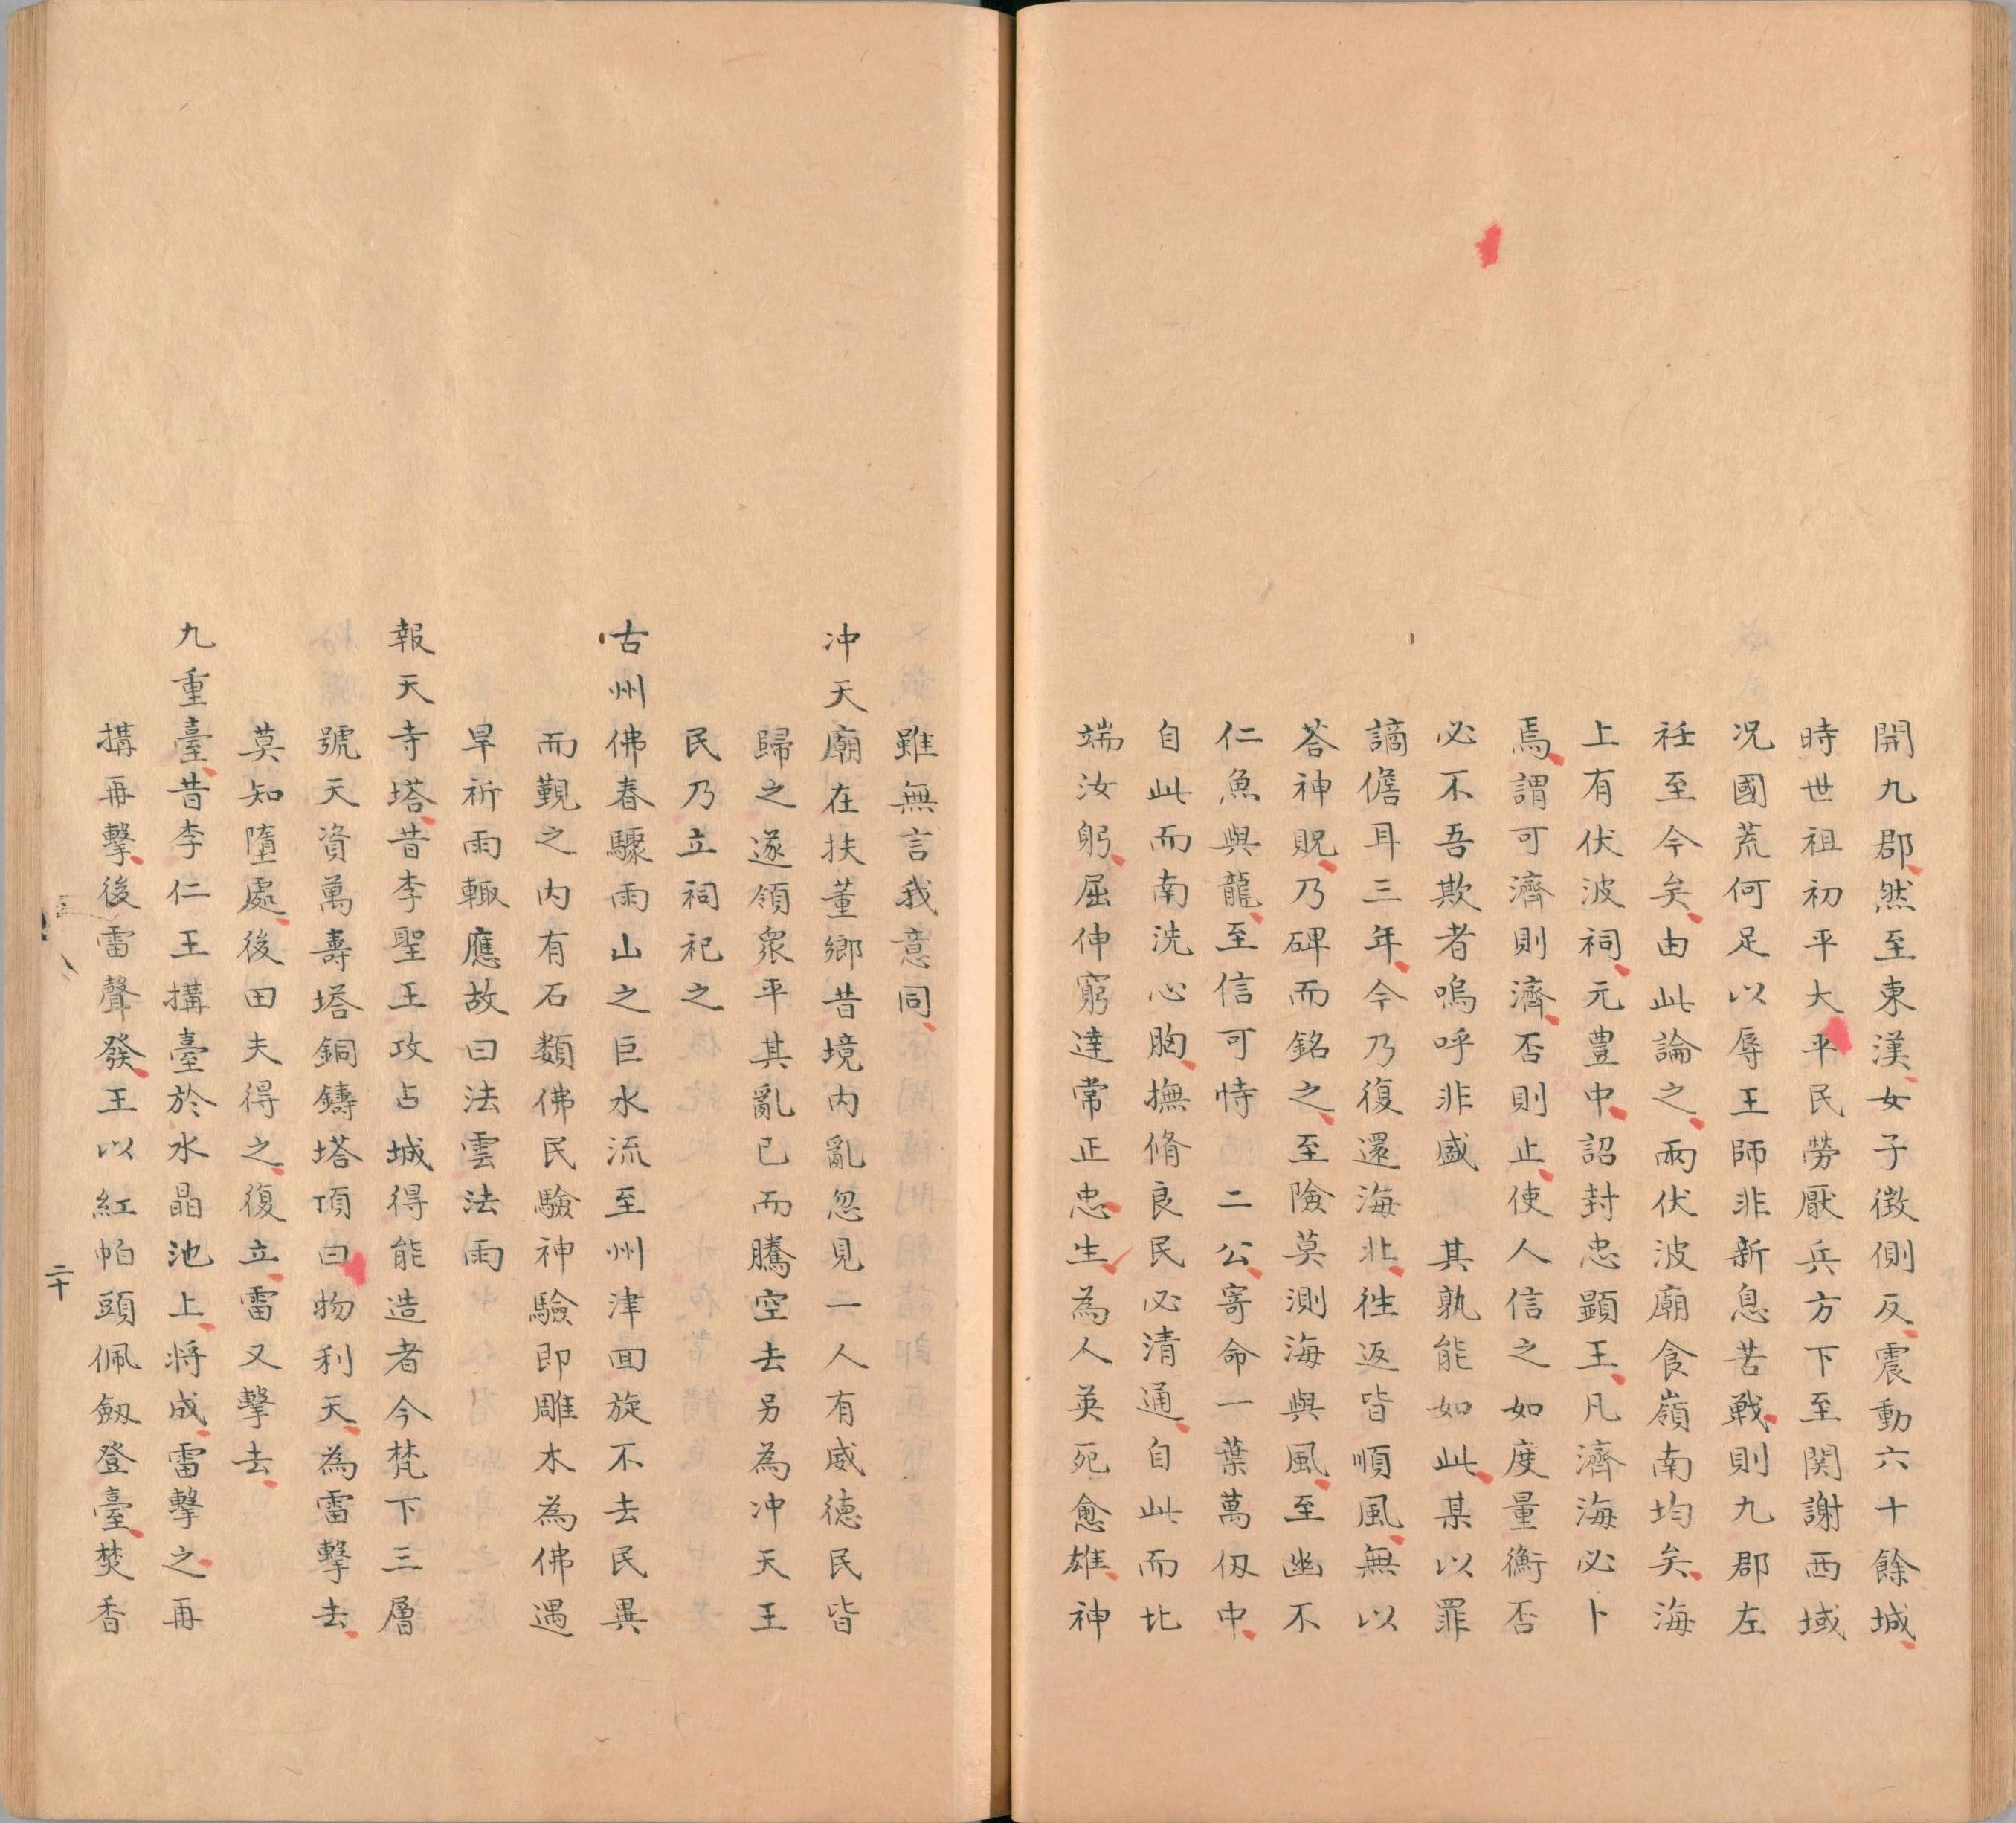 開九郡然至東漢女子徴側反震動六十餘城
時世祖初平大平民勞厭兵方下至関謝西域
况國荒何足以辱王師非新息苦戰則九郡左
衽至今矣由此論之兩伏波廟食嶺南均矣海
上有伏波祠元豊中詔封忠顕王凡濟海必卜
焉謂可濟則濟否則止使人信之如度量衡否
必不吾欺者嗚呼非盛其孰能如此某以罪
謫儋耳三年今乃復還海北徃返皆順風無以
荅神貺乃碑而銘之至險莫測海與風至幽不
仁魚與龍至信可恃二公寄命一葉萬仭中
自此而南洗心胸撫脩良民必清通自此而北
端汝躬屈伸窮達常正忠生為人英死愈雄神
雖無言我意同
冲天廟在扶董鄉昔境内亂忽見一人有威德民皆
歸之遂領眾平其亂已而騰空去另為冲天王
民乃立祠祀之
古州佛春驟雨山之巨水流至州津囬旋不去民異
而觀之内有石類佛民驗神驗即雕木為佛遇
旱祈雨輙應故曰法雲法雨
報天寺塔昔李聖王攻占城得能造者今梵下三層
號天資萬壽塔銅鑄塔項曰物利天為雷擊去
莫知墮處後田夫得之復立雷又擊去
九重臺昔李仁王搆臺於水晶池上将成雷擊之再
搆再擊後雷聲發王以紅帕頭佩劔登臺焚香
二十